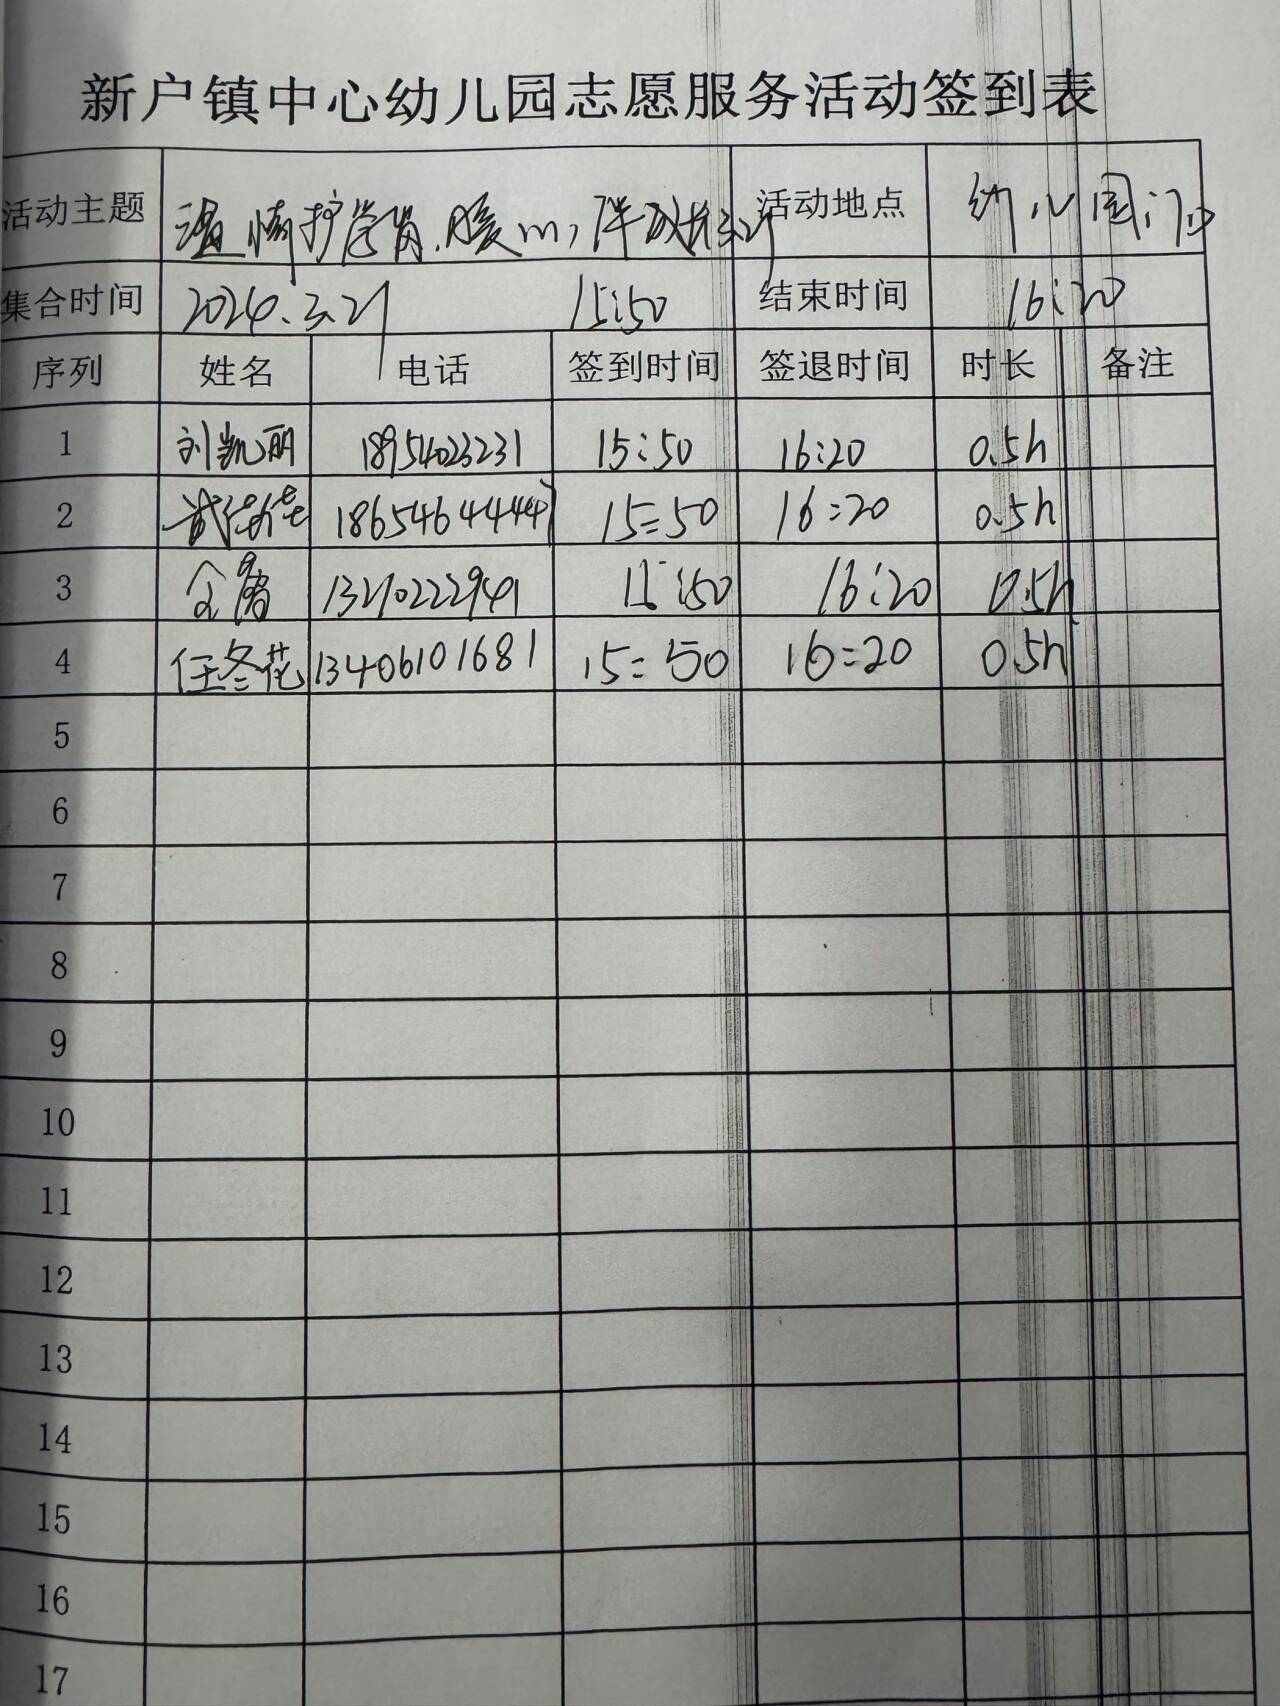 新户镇中心幼儿园志愿服务活动签到表
活动主题 温情护学岗,暖心伴成长 活动地点 幼儿园门口
集合时间 2024.3.21 15:50 结束时间 16:20
序列 姓名 电话 签到时间 签退时间 时长 备注
1 刘凯丽 18954023231 15:50 16:20 0.5h
2 18654644444 15:50 16:20 0.5h
3 13210222941 15:50 16:20 0.5h
4 任冬花 13406101681 15:50 16:20 0.5h
5
6
7
8
9
10
11
12
13
14
15
16
17